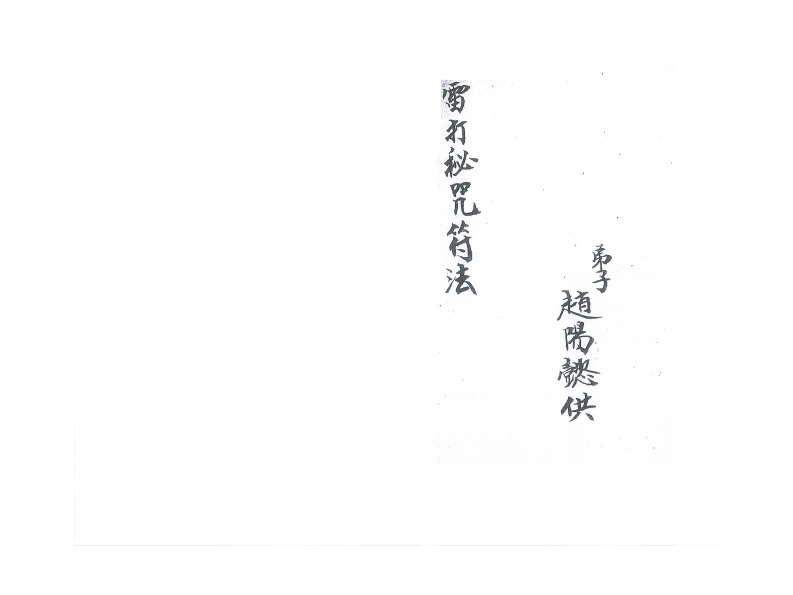 弟子
趙陽懿供
雷打秘咒符法